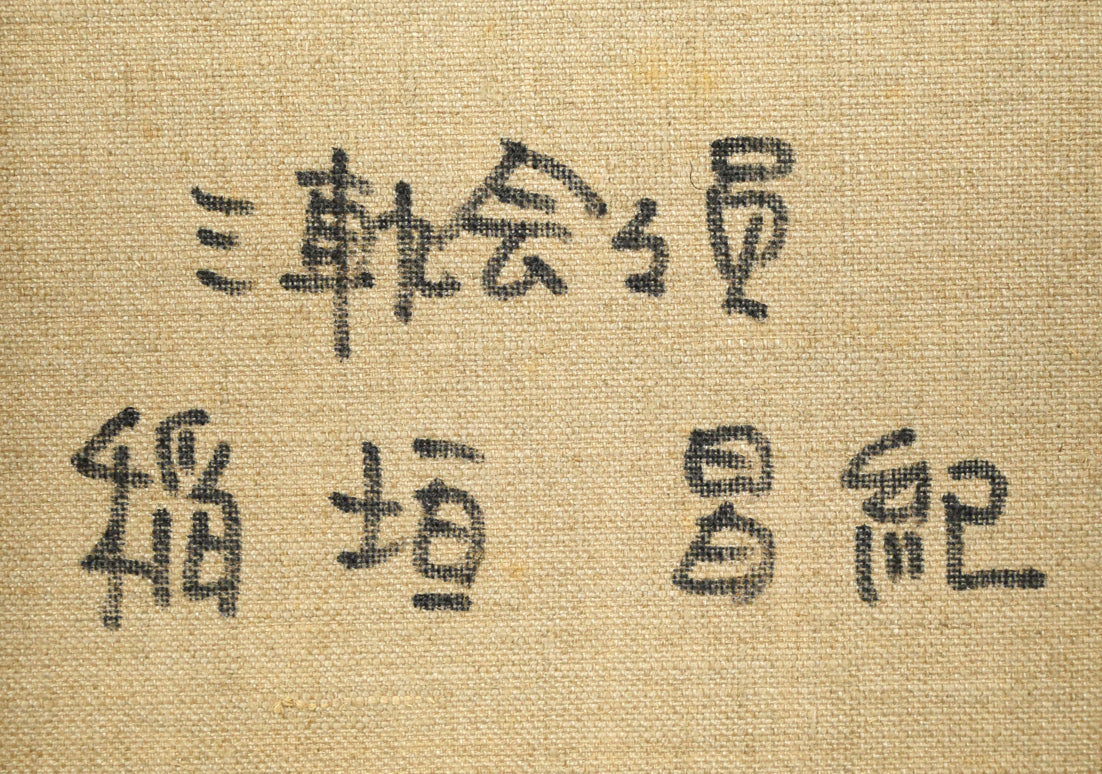 三軌会々員
稲垣 昌紀